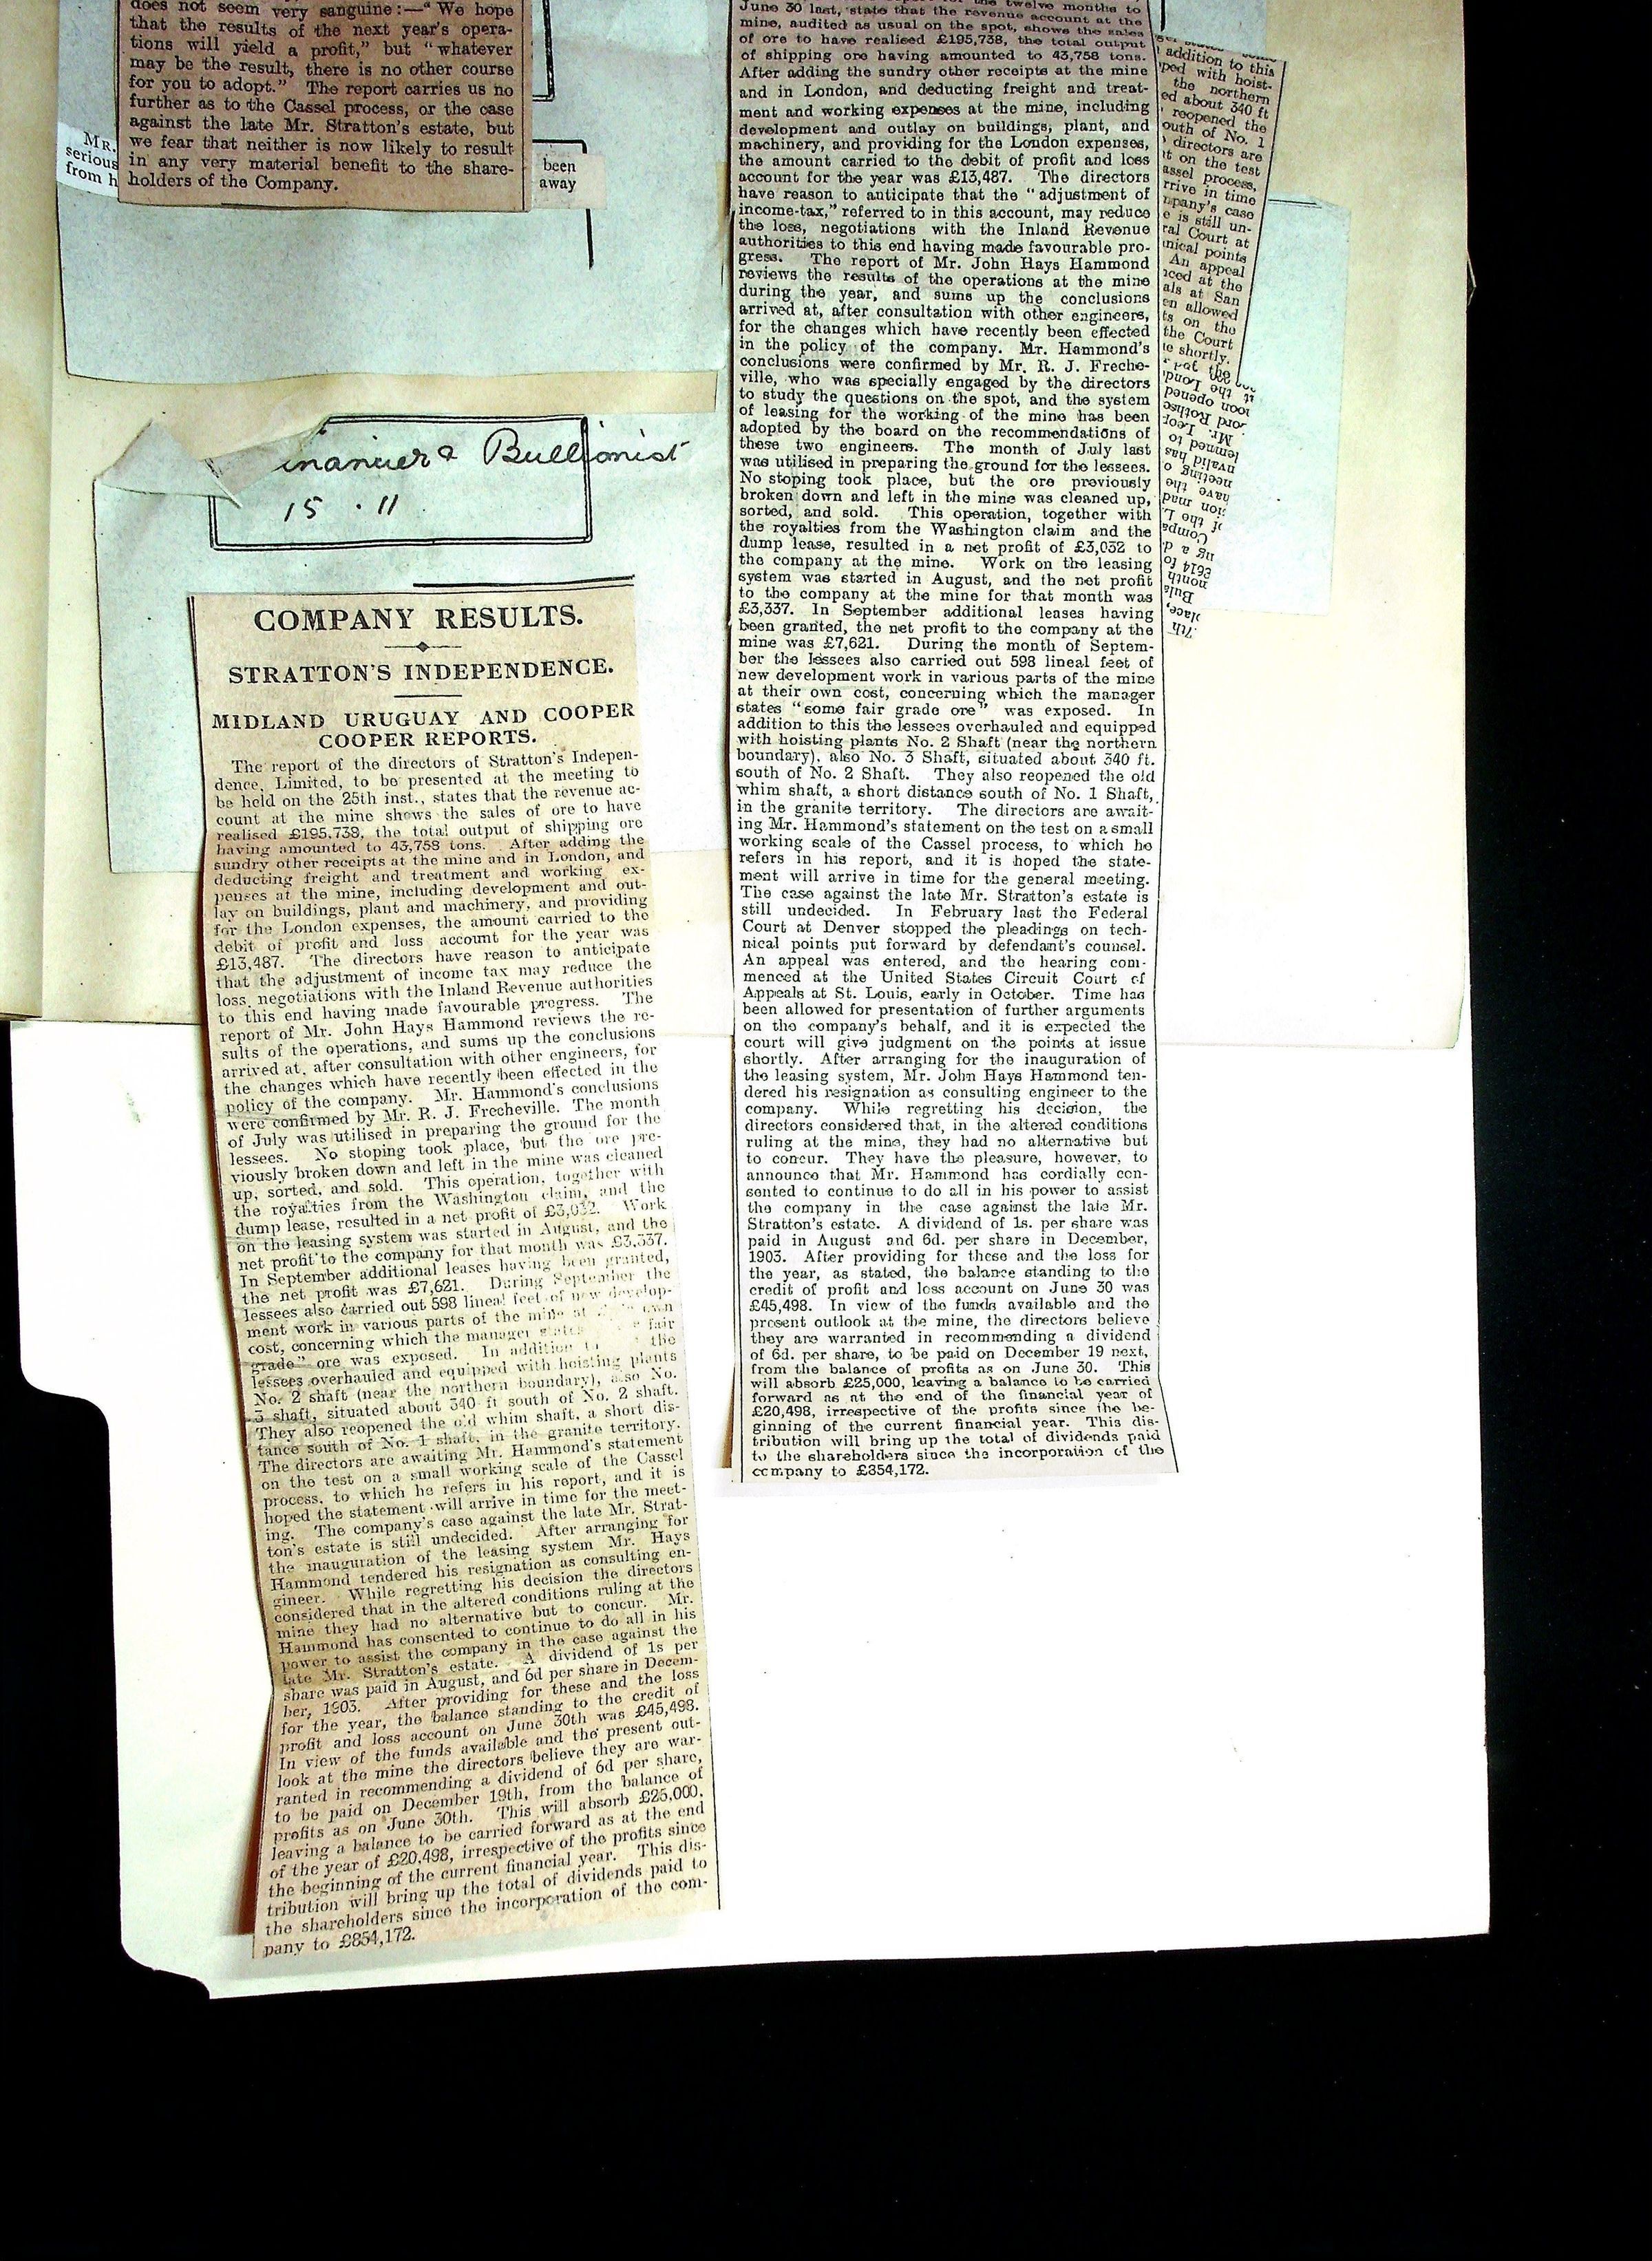 does not seem very sanguine:—“We hope
that the results of the next year's opera-
tions will yield a profit,” but “whatever
may be the result, there is no other course
for you to adopt.” The report carries us no
further as to the Cassel process, or the case
against the late Mr. Stratton's estate, but
we fear that neither is now likely to result
in any very material benefit to the share-
holders of the Company.
MR.
serious
from h
been
away
inancier & Bullionist
15 . 11
COMPANY RESULTS.
STRATTON'S INDEPENDENCE.
MIDLAND URUGUAY AND COOPER
COOPER REPORTS.
The report of the directors of Stratton's Indepen-
dence, Limited, to be presented at the meeting to
be held on the 25th inst., states that the revenue ac-
count at the mine shows the sales of ore to have
realised £195,738, the total output of shipping ore
having amounted to 43,758 tons. After adding the
sundry other receipts at the mine and in London, and
deducting freight and treatment and working ex-
penses at the mine, including development and out-
lay on buildings, plant and machinery, and providing
for the London expenses, the amount carried to the
debit of profit and loss account for the year was
£13,487. The directors have reason to anticipate
that the adjustment of income tax may reduce the
loss, negotiations with the Inland Revenue authorities
to this end having made favourable progress. The
report of Mr. John Hays Hammond reviews the re-
sults of the operations, and sums up the conclusions
arrived at, after consultation with other engineers, for
the changes which have recently been effected in the
policy of the company. Mr. Hammond's conclusions
were confirmed by Mr. R. J. Frecheville. The month
of July was utilised in preparing the ground for the
lessees. No stoping took place, but the ore pre-
viously broken down and left in the mine was cleaned
up, sorted, and sold. This operation, together with
the royalties from the Washington claim, and the
dump lease, resulted in a net profit of £3,032. Work
on the leasing system was started in August, and the
net profit to the company for that month was £3,337.
In September additional leases having been granted,
the net profit was £7,621. During September the
lessees also carried out 598 lineal feet of new develop-
ment work in various parts of the mine at own
cost, concerning which the manager states fair
grade” ore was exposed. In addition the
lessees overhauled and equipped with hoisting plants
No. 2 shaft (near the northern boundary), also No.
3 shaft, situated about 340 ft south of No. 2 shaft.
They also reopened the old whim shaft, a short dis-
tance south of No. 1 shaft, in the granite territory.
The directors are awaiting Mr. Hammond's statement
on the test on a small working scale of the Cassel
process, to which he refers in his report, and it is
hoped the statement will arrive in time for the meet-
ing. The company's case against the late Mr. Strat-
ton's estate is still undecided. After arranging for
the inauguration of the leasing system Mr. Hays
Hammond tendered his resignation as consulting en-
gineer. While regretting his decision the directors
considered that in the altered conditions ruling at the
mine they had no alternative but to concur. Mr.
Hammond has consented to continue to do all in his
power to assist the company in the case against the
late Mr. Stratton's estate. A dividend of 1s per
share was paid in August, and 6d per share in Decem-
ber, 1903. After providing for these and the loss
for the year, the balance standing to the credit of
profit and loss account on June 30th was £45,498.
In view of the funds available and the present out-
look at the mine the directors believe they are war-
ranted in recommending a dividend of 6d per share,
to be paid on December 19th, from the balance of
profits as on June 30th. This will absorb £25,000,
leaving a balance to be carried forward as at the end
of the year of £20,498, irrespective of the profits since
the beginning of the current financial year. This dis-
tribution will bring up the total of dividends paid to
the shareholders since the incorporation of the com-
pany to £854,172.
twelve months to
June 30 last, state that the revenue account at the
mine, audited as usual on the spot, shows the sales
of ore to have realised £195,738, the total output
of shipping ore having amounted to 43,758 tons.
After adding the sundry other receipts at the mine
and in London, and deducting freight and treat-
ment and working expenses at the mine, including
development and outlay on buildings, plant, and
machinery, and providing for the London expenses,
the amount carried to the debit of profit and loss
account for the year was £13,487. The directors
have reason to anticipate that the “adjustment of
income-tax,” referred to in this account, may reduce
the loss, negotiations with the Inland Revenue
authorities to this end having made favourable pro-
gress. The report of Mr. John Hays Hammond
reviews the results of the operations at the mine
during the year, and sums up the conclusions
arrived at, after consultation with other engineers,
for the changes which have recently been effected
in the policy of the company. Mr. Hammond's
conclusions were confirmed by Mr. R. J. Freche-
ville, who was specially engaged by the directors
to study the questions on the spot, and the system
of leasing for the working of the mine has been
adopted by the board on the recommendations of
these two engineers. The month of July last
was utilised in preparing the ground for the lessees.
No stoping took place, but the ore previously
broken down and left in the mine was cleaned up,
sorted, and sold. This operation, together with
the royalties from the Washington claim and the
dump lease, resulted in a net profit of £3,032 to
the company at the mine. Work on the leasing
system was started in August, and the net profit
to the company at the mine for that month was
£3,337. In September additional leases having
been granted, the net profit to the company at the
mine was £7,621. During the month of Septem-
ber the lessees also carried out 598 lineal feet of
new development work in various parts of the mine
at their own cost, concerning which the manager
states “some fair grade ore” was exposed. In
addition to this the lessees overhauled and equipped
with hoisting plants No. 2 Shaft (near the northern
boundary), also No. 3 Shaft, situated about 340 ft.
south of No. 2 Shaft. They also reopened the old
whim shaft, a short distance south of No. 1 Shaft,
in the granite territory. The directors are await-
ing Mr. Hammond's statement on the test on a small
working scale of the Cassel process, to which he
refers in his report, and it is hoped the state-
ment will arrive in time for the general meeting.
The case against the late Mr. Stratton's estate is
still undecided. In February last the Federal
Court at Denver stopped the pleadings on tech-
nical points put forward by defendant's counsel.
An appeal was entered, and the hearing com-
menced at the United States Circuit Court of
Appeals at St. Louis, early in October. Time has
been allowed for presentation of further arguments
on the company's behalf, and it is expected the
court will give judgment on the points at issue
shortly. After arranging for the inauguration of
the leasing system, Mr. John Hays Hammond ten-
dered his resignation as consulting engineer to the
company. While regretting his decision, the
directors considered that, in the altered conditions
ruling at the mine, they had no alternative but
to concur. They have the pleasure, however, to
announce that Mr. Hammond has cordially con-
sented to continue to do all in his power to assist
the company in the case against the late Mr.
Stratton's estate. A dividend of 1s. per share was
paid in August and 6d. per share in December,
1903. After providing for these and the loss for
the year, as stated, the balance standing to the
credit of profit and loss account on June 30 was
£45,498. In view of the funds available and the
present outlook at the mine, the directors believe
they are warranted in recommending a dividend
of 6d. per share, to be paid on December 19 next,
from the balance of profits as on June 30. This
will absorb £25,000, leaving a balance to be carried
forward as at the end of the financial year of
£20,498, irrespective of the profits since the be-
ginning of the current financial year. This dis-
tribution will bring up the total of dividends paid
to the shareholders since the incorporation of the
company to £854,172.
addition to this
ped with hoist-
the northern
ed about 340 ft
reopened the
outh of No. 1
directors are
t on the test
assel process,
rrive in time
mpany's case
e is still un-
ral Court at
nical points
An appeal
nced at the
als at San
en allowed
ts on the
the Court
e shortly.
t the Lond
oon opened
ord Rothsc
Mr. Leop
lemned to
nvalid has
neeting o
have the
tion mad
f the L
Compa
ng a d
£614 fo
month
Bula
place,
7th